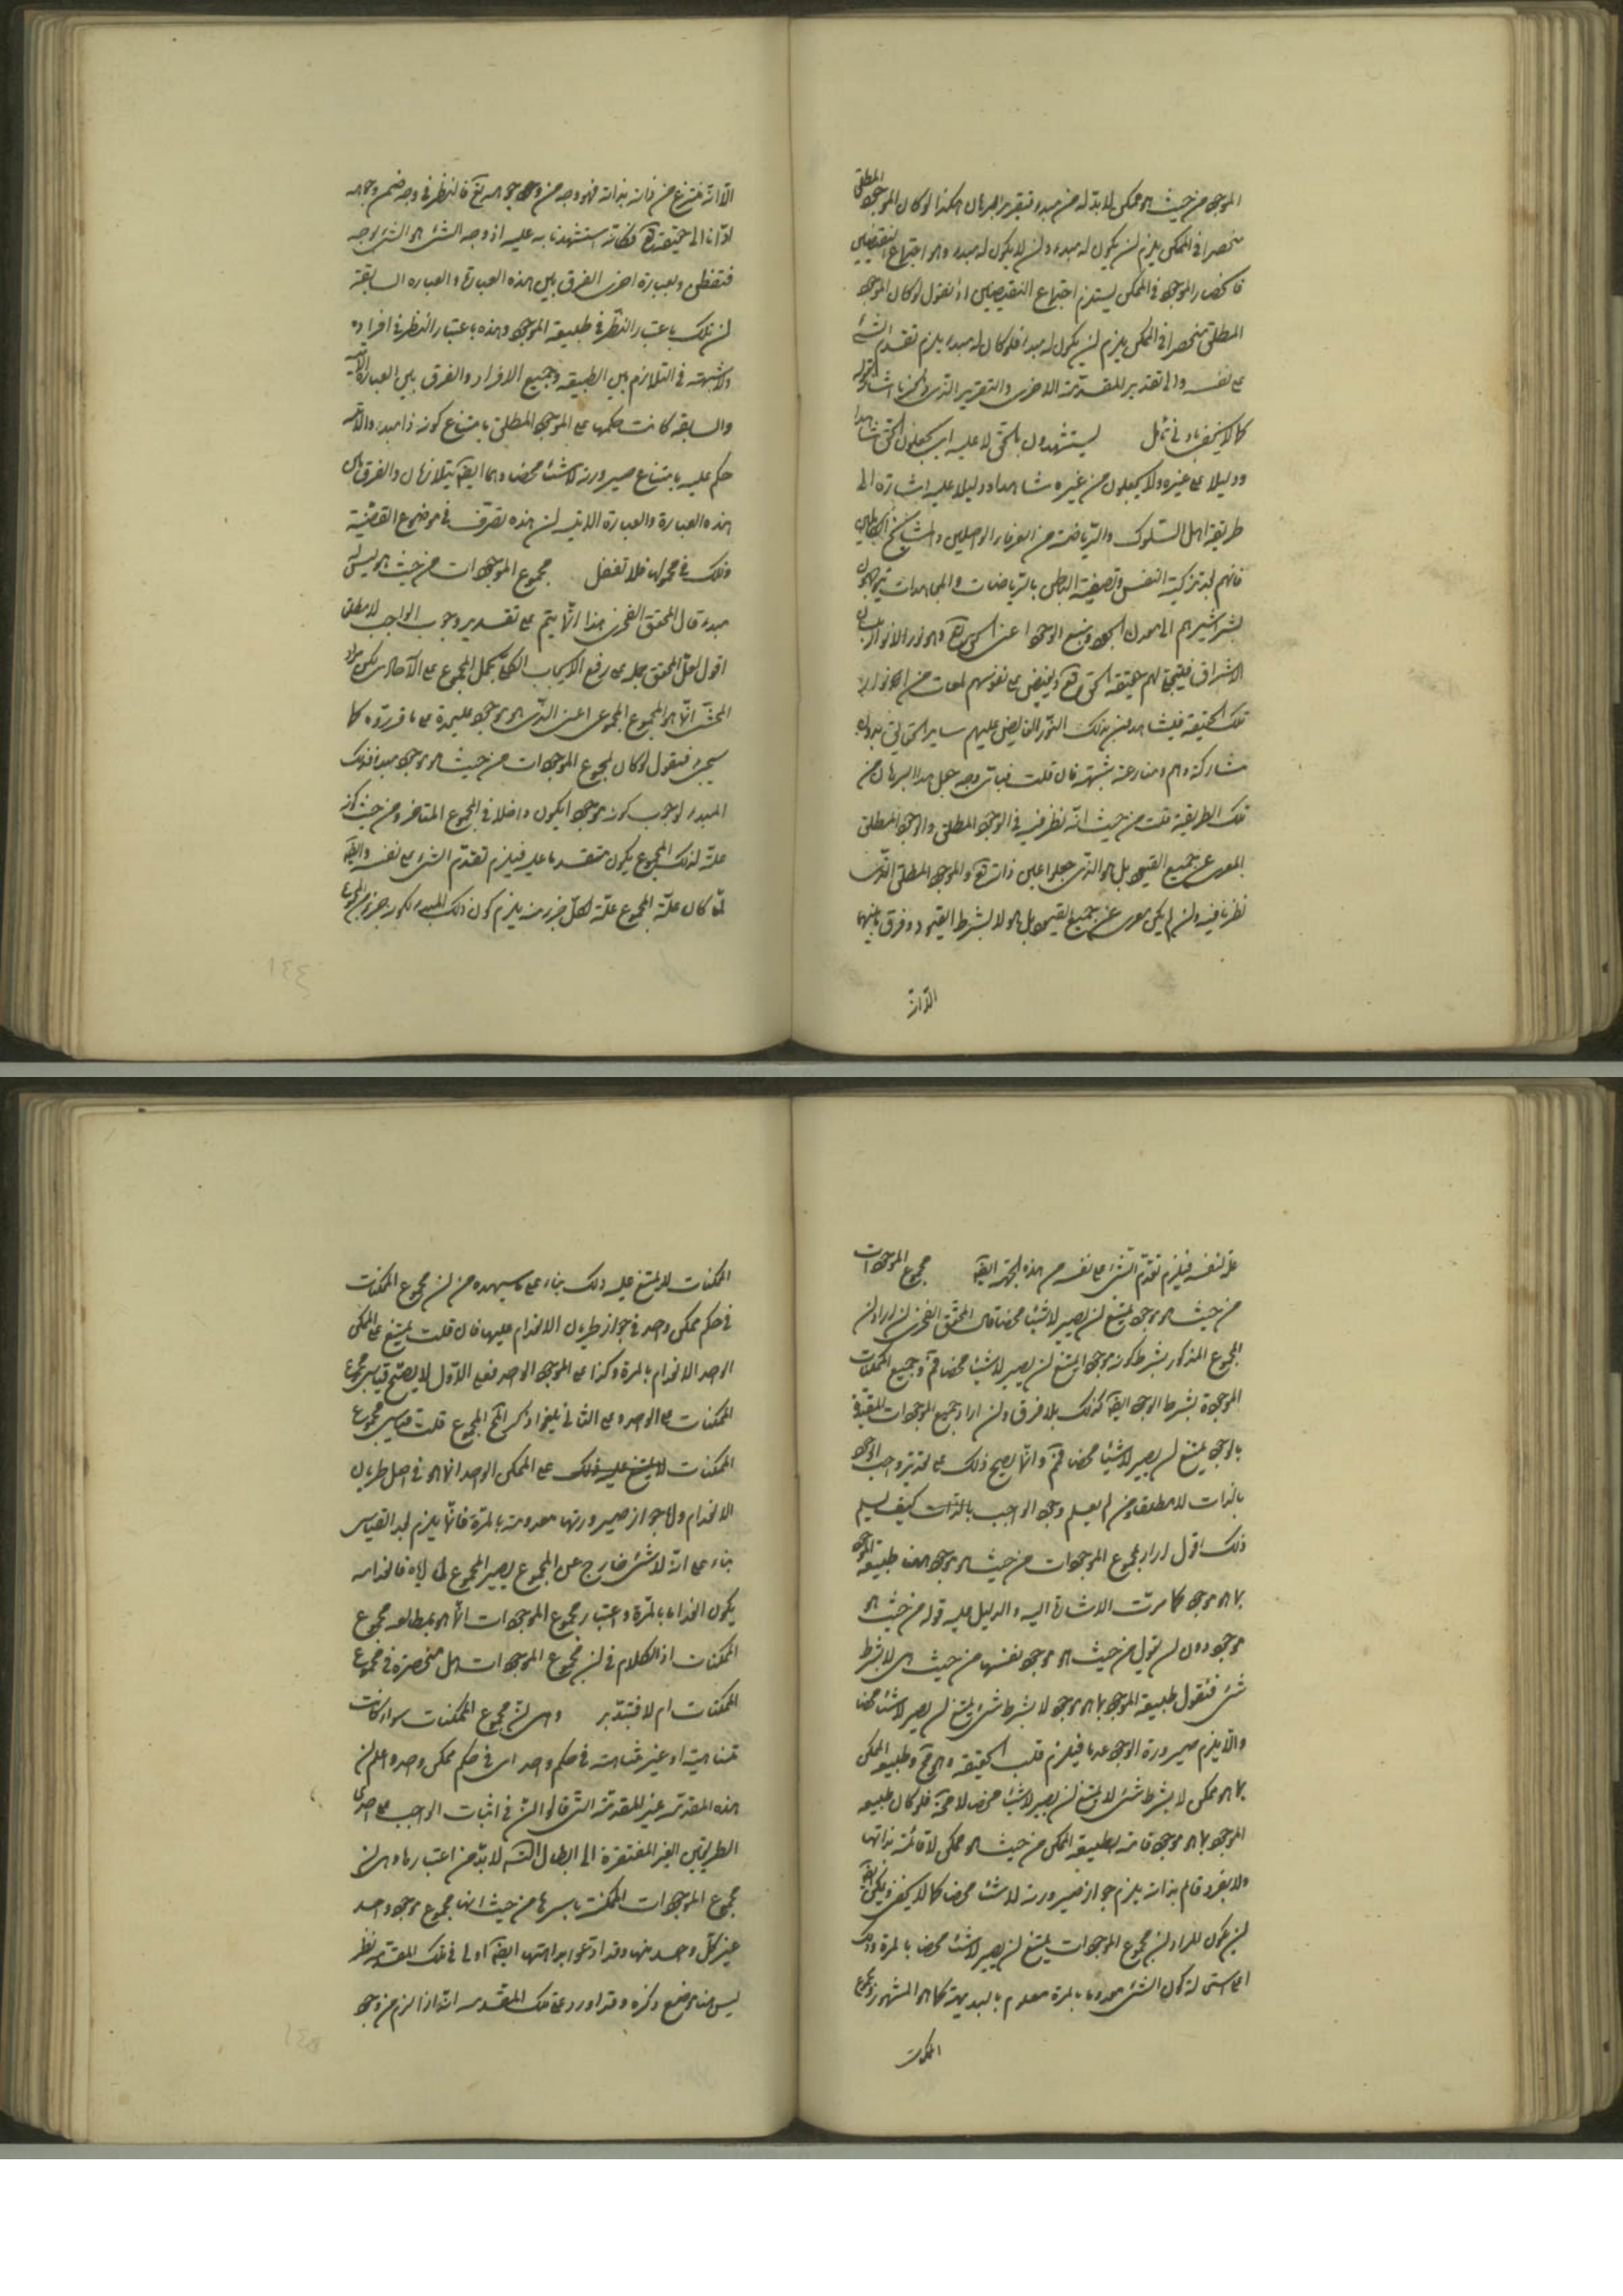 الموجود من حيث هو ممكن لابد له من مبدء فتقرير البرهان هكذا لو كان الموجود المطلق
منحصرا في الممكن يلزم ان يكون له مبدء وان لا يكون له مبدء وهو اجتماع النقيضين
فانحصار الموجود في الممكن يستلزم اجتماع النقيضين او نقول لو كان الموجود
المطلق منحصرا في الممكن يلزم ان يكون له مبدا فلو كان له مبدء يلزم تقدم الشئ
على نفسه والى تقدير المقدمة الاخرى والتقرير الذي
كما لا يخفى بادنى تامل يستشهدون بالحق لا عليه اي يجعلون الحق شاهدا
ودليلا على غيره ولا يجعلون من غيره شاهدا ودليلا عليه اشارة الى
طريقة اهل السلوك والرياضة من العرفاء الواصلين والمشايخ الكاملين
فانهم بعد تزكية النفس وتصفية الباطن بالرياضات والمجاهدات يتوجهون
بشراشرهم الى معدن الجود ومنبع الوجود اعني الحق تع وهو نور الانوار
الاشراق فيتجلى لهم حقيقة الحق تع ويفيض على نفوسهم لمعات من انوار
تلك الحقيقة فيشاهدون بذلك النور الفايض عليهم ساير الحقايق بدون
مشاركة وهم ومنازعة شبهة فان قلت فباي وجه جعل هذا البرهان من
تلك الطريقة قلت من حيث انه نظر فيه في الوجود المطلق والوجود المطلق
المعرى عن جميع القيود بل هو الذي جعلوا عين ذاته تع والموجود المطلق الذي
نظرنا فيه وان لم يكن معرى عن جميع القيود بل هو لا بشرط القيود وفرق ما بينهما
الا انه
الا انه منتزع من ذاته بذاته فهو وجه من وجوهه تع فالنظر في وجه من وجوهه
ادانا الى حقيقته تع فكانه استشهدنا به عليه اذ وجه الشئ هو الشئ بوجه
فتفطن وبعبارة اخرى الفرق بين هذه العبارة والعبارة السابقة
ان تلك باعتبار النظر في طبيعة الموجود وهذه باعتبار النظر في افراده
ولا شبهة في التلازم بين الطبيعة وجميع الافراد والفرق بين العبارة الاتية
والسابقة كانت حكمها على الموجود المطلق بامتناع كونه ذا مبدء والاتية
حكم عليه بامتناع صيرورته لا شيئا محضا وهما ايضا يتلازمان والفرق بين
هذه العبارة والعبارة الاتية ان هذه تصرف في موضوع القضية
وتلك في محمولها فلا تغفل مجموع الموجودات من حيث هو ليس له
مبدء قال المحقق الفخري هذا انما يتم على تقدير وجوب الواجب لا مطلقا
اقول لعل المحقق حمله على رفع الايجاب الكلي بحمل المجموع على الاحاد لكن مراد
المحشي انما هو المجموع المجموعي اعني الذي هو موجود عليحدة على ما قرروه كما
سيجئ فنقول لو كان لمجموع الموجودات من حيث هو موجود مبدا فذلك
المبدء لوجوب كونه موجودا يكون داخلا في المجموع المتاخر ومن حيث كونه
علة لذلك المجموع يكون متقدما عليه فيلزم تقدم الشئ على نفسه وايضا
لما كان علة المجموع علة لكل جزء منه يلزم كون ذلك المبدء لكونه جزء من المجموع
علة لنفسه فيلزم تقدم الشئ على نفسه من هذه الجهة ايضا مجموع الموجودات
من حيث هو موجود يمتنع ان يصير لا شيئا محضا قال المحقق الفخري ان اراد ان
المجموع المذكور بشرط كونه موجودا يمتنع ان يصير لا شيئا محضا فمم وجميع الممكنات
الموجودة بشرط الوجود ايضا كذلك بلا فرق وان اراد جميع الموجودات المقيدة
بالوجود يمتنع ان يصير لا شيئا محضا فمم وانما يصح ذلك على تقدير واجب الوجود
بالذات لا مطلقا ومن لم يعلم وجود الواجب بالذات كيف يسلم
ذلك اقول اراد بمجموع الموجودات من حيث هو موجود نفس طبيعة الموجود
بما هو موجود كما مرت الاشارة اليه والدليل عليه قوله من حيث هو
موجود دون ان يقول من حيث هو موجود نفسها من حيث هي لا بشرط
شئ فنقول طبيعة الموجود بما هو موجود لا بشرط شئ يمتنع ان يصير لا شيئا محضا
والا يلزم صيرورة الوجود عدما فيلزم قلب الحقيقة وهو مح وطبيعة الممكن
بما هو ممكن لا بشرط شئ لا يمتنع ان يصير لا شيئا محضا لا محة فلو كان طبيعة
الموجود بما هو موجود قائمة بطبيعة الممكن من حيث هو ممكن لا قائمة بذاتها
ولا بفرد قائم بذاته يلزم جواز صيرورته لا شيئا محضا كما لا يخفى ويمكن ايضا
ان يكون المراد ان مجموع الموجودات يمتنع ان يصير لا شيئا محضا بالمرة وذلك
اي استحالة كون الشئ معدوما بالمرة معلوم بالبديهة كما هو المشهور ومجموع
الممكنات
الممكنات لا يمتنع عليه ذلك بناء على ما سيمهده من ان مجموع الممكنات
في حكم ممكن واحد في جواز طريان الانعدام عليها فان قلت يمتنع على الممكن
الواحد الانعدام بالمرة وكذا على الموجود الواحد فعلى الاول لا يصح قياس مجموع
الممكنات على الواحد وعلى الثاني يلغو اذ كر المجموع قلت قياس مجموع
الممكنات لا يمتنع عليه ذلك على الممكن الواحد انما هو في اصل طريان
الانعدام واما جواز صيرورتها معدومة بالمرة فانما يلزم بعد القياس
بناء على انه لا شئ خارج عن المجموع يصير المجموع اياه فانعدامه
يكون انعداما بالمرة واعتبار مجموع الموجودات انما هو مجموع
الممكنات اذ الكلام في ان مجموع الموجودات هل منحصرة في مجموع
الممكنات ام لا فتدبر وهي ان مجموع الممكنات سواء كانت
متناهية او غير متناهية في حكم واحد اي في حكم ممكن واحد واعلم ان
هذه المقدمة غير المقدمة التي قالوا ان في اثبات الواجب على احدى
الطريقين الغير المفتقرة الى ابطال التسلسل لابد من اعتبارها وهي ان
مجموع الموجودات الممكنة باسرها من حيث انها مجموع موجود واحد
غير كل واحد منها وقد ادعوا بداهتها ايضا اولا في تلك المقدمة نظر
ليس هنا موضع ذكره وقد اورد على تلك المقدمة انه اذا لزم من وجود